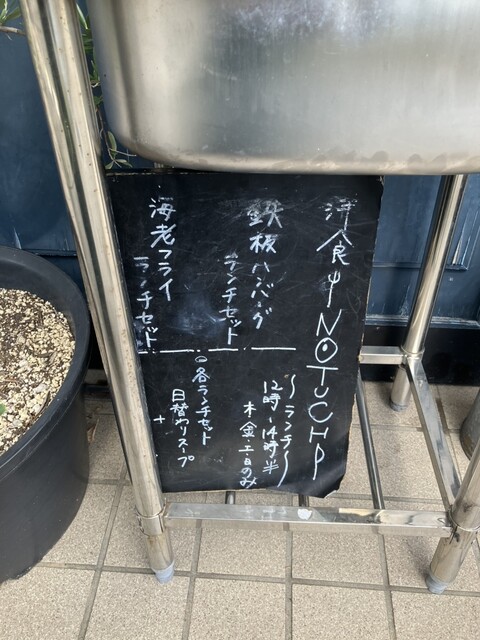 洋食 NOTUCHI
鉄板ハンバーグ
ランチセット
海老フライ
ランチセット
～ランチ～
12時～14時半
木・金・土・日のみ
◎各ランチセット
日替わりスープ
+